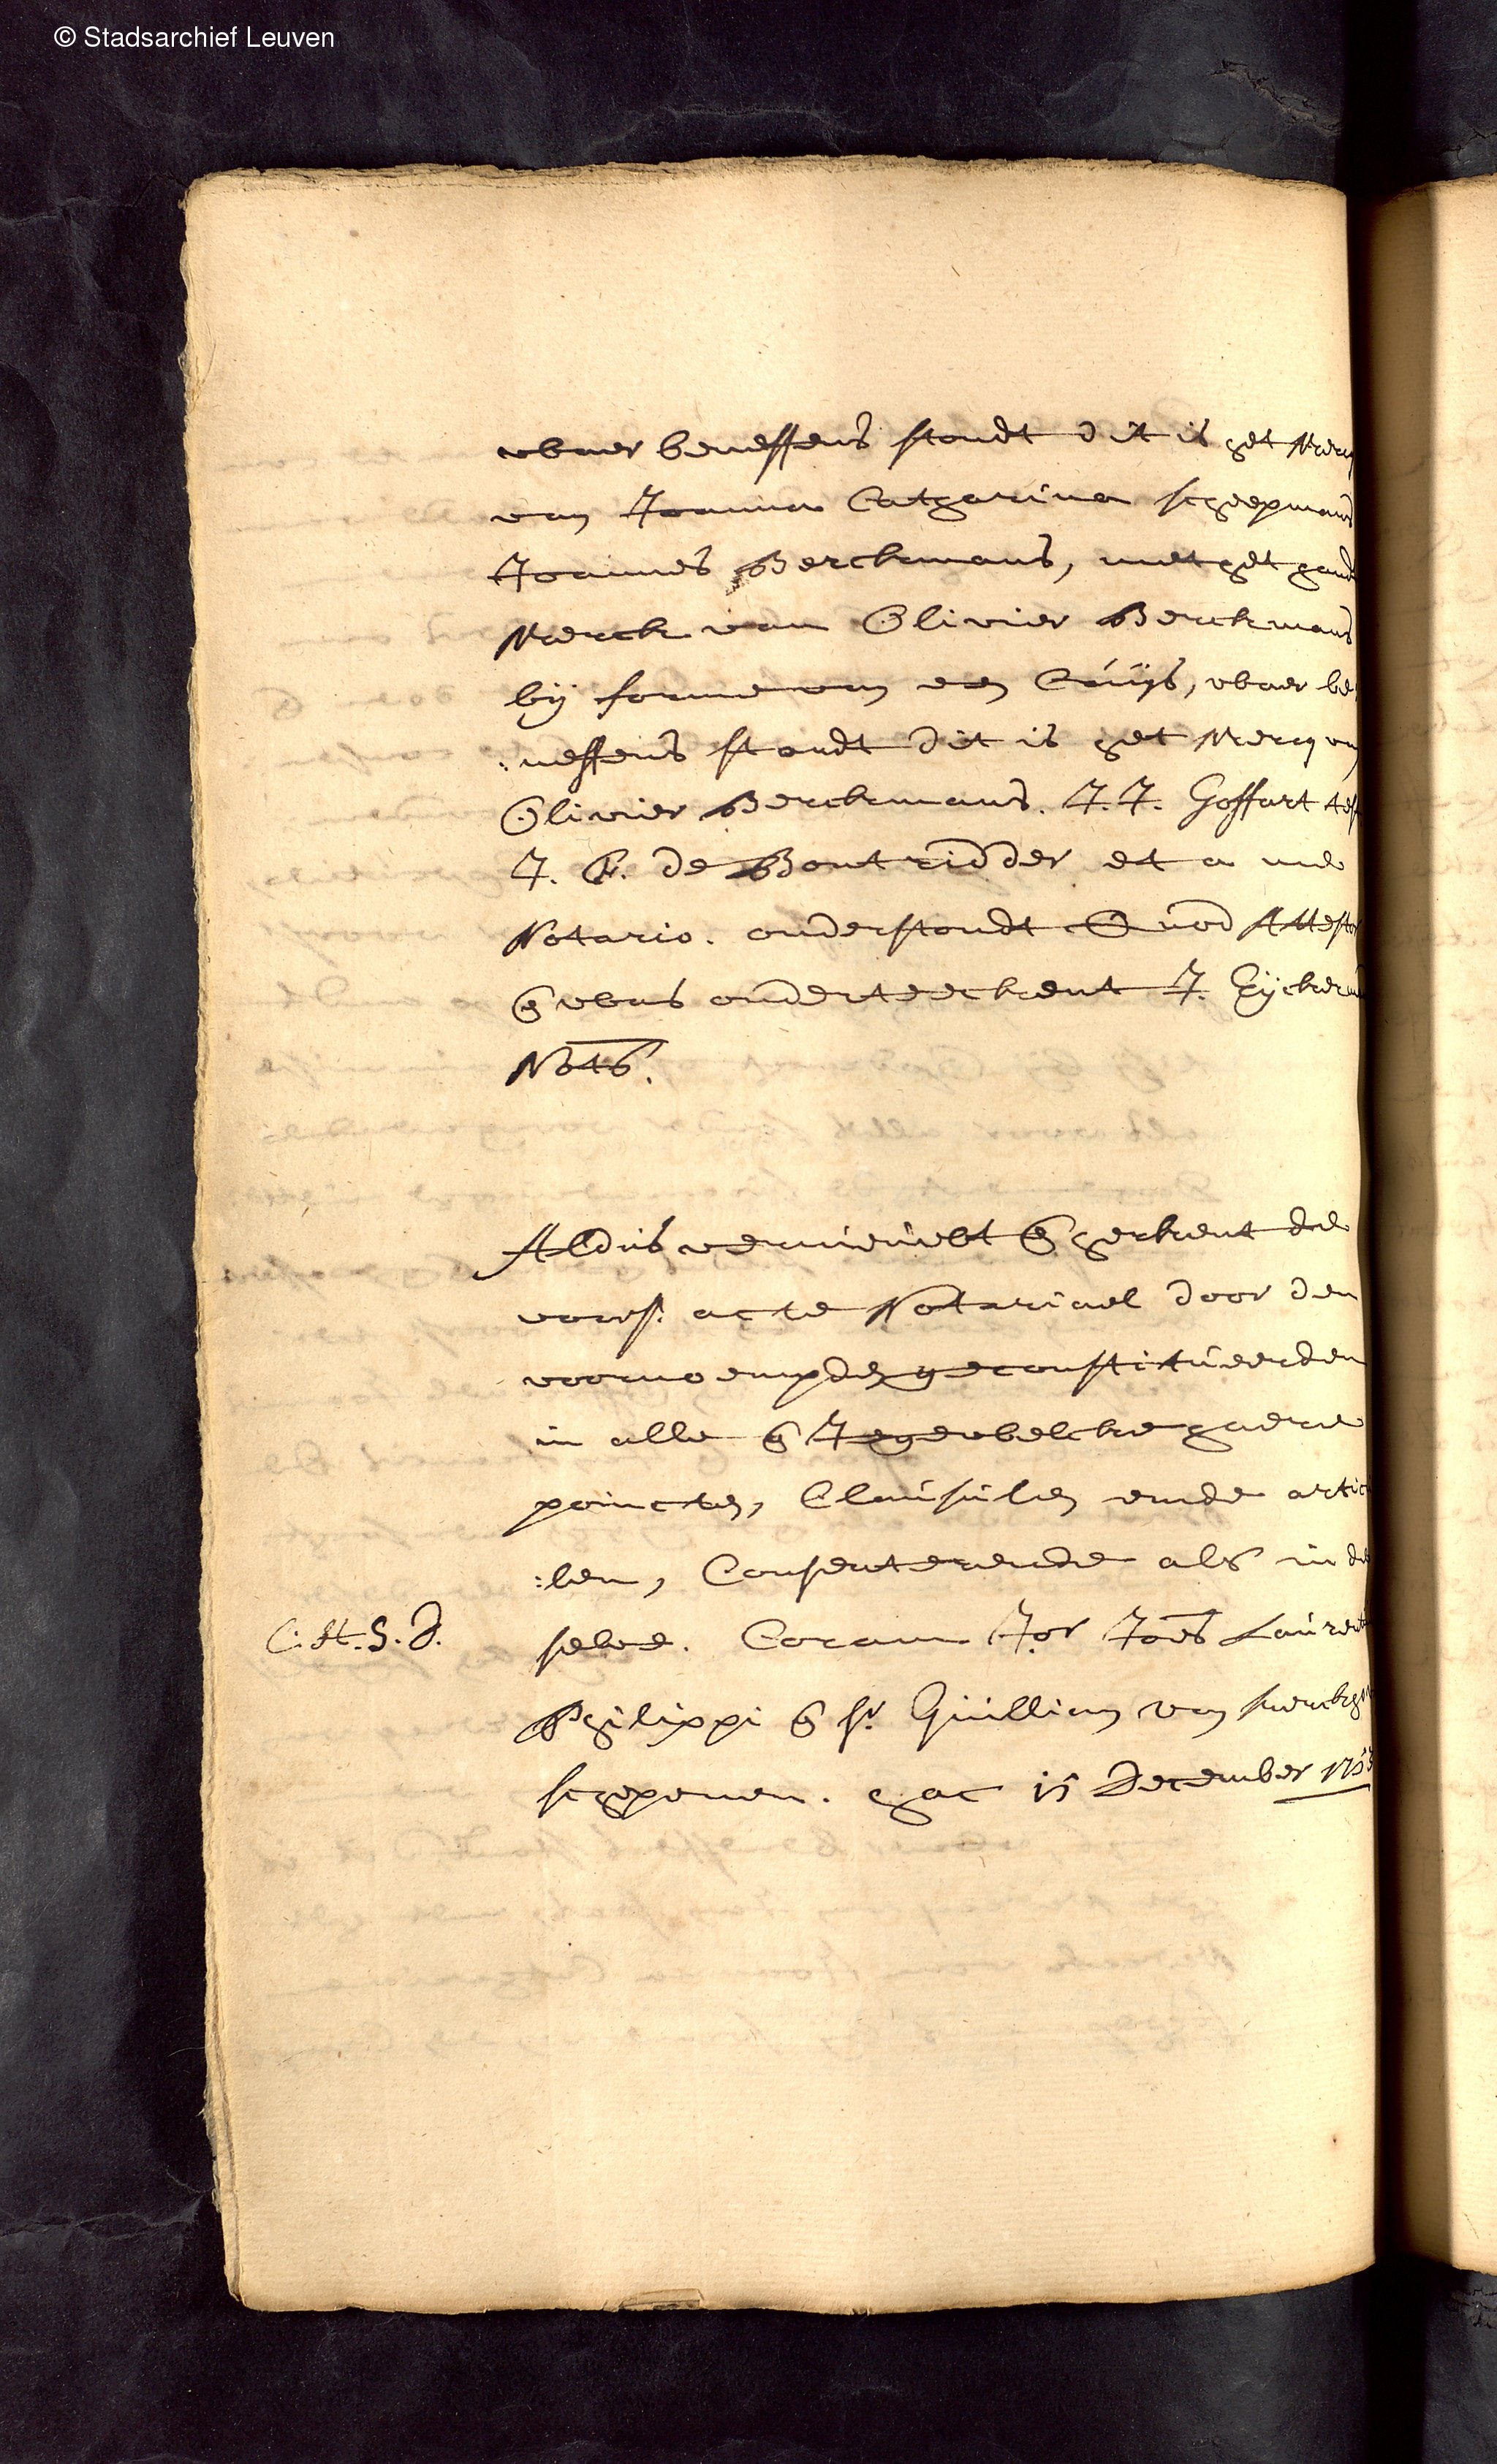 © Stadsarchief Leuven
waer beneffens stondt dit is het Merq
van Joanna Catharina schepmans
Joannes Berckmans, met het handt
Merck van Olivier Berckmans
bij forme van een Cruijs, waer be
:neffens stondt dit is het Merq van
Olivier Berckmans. J. J. Goffart test
J. F. de Bontridder et a me
Notario. onderstondt Quod Attestor
en was onderteeckent J.
Nots.
Aldus vernieuwt en herkent de
voors. acte Notariael door den
voornoempden geconstitueerden
in alle en Iegewelcke haere
poincten, Clausulen ende artic
:len, Consenterende als in de
C. St. S. D.
selve. Coram Jor Joes Laurent
Philippi en sr. Guilliam van
schepenen. hac 15 December